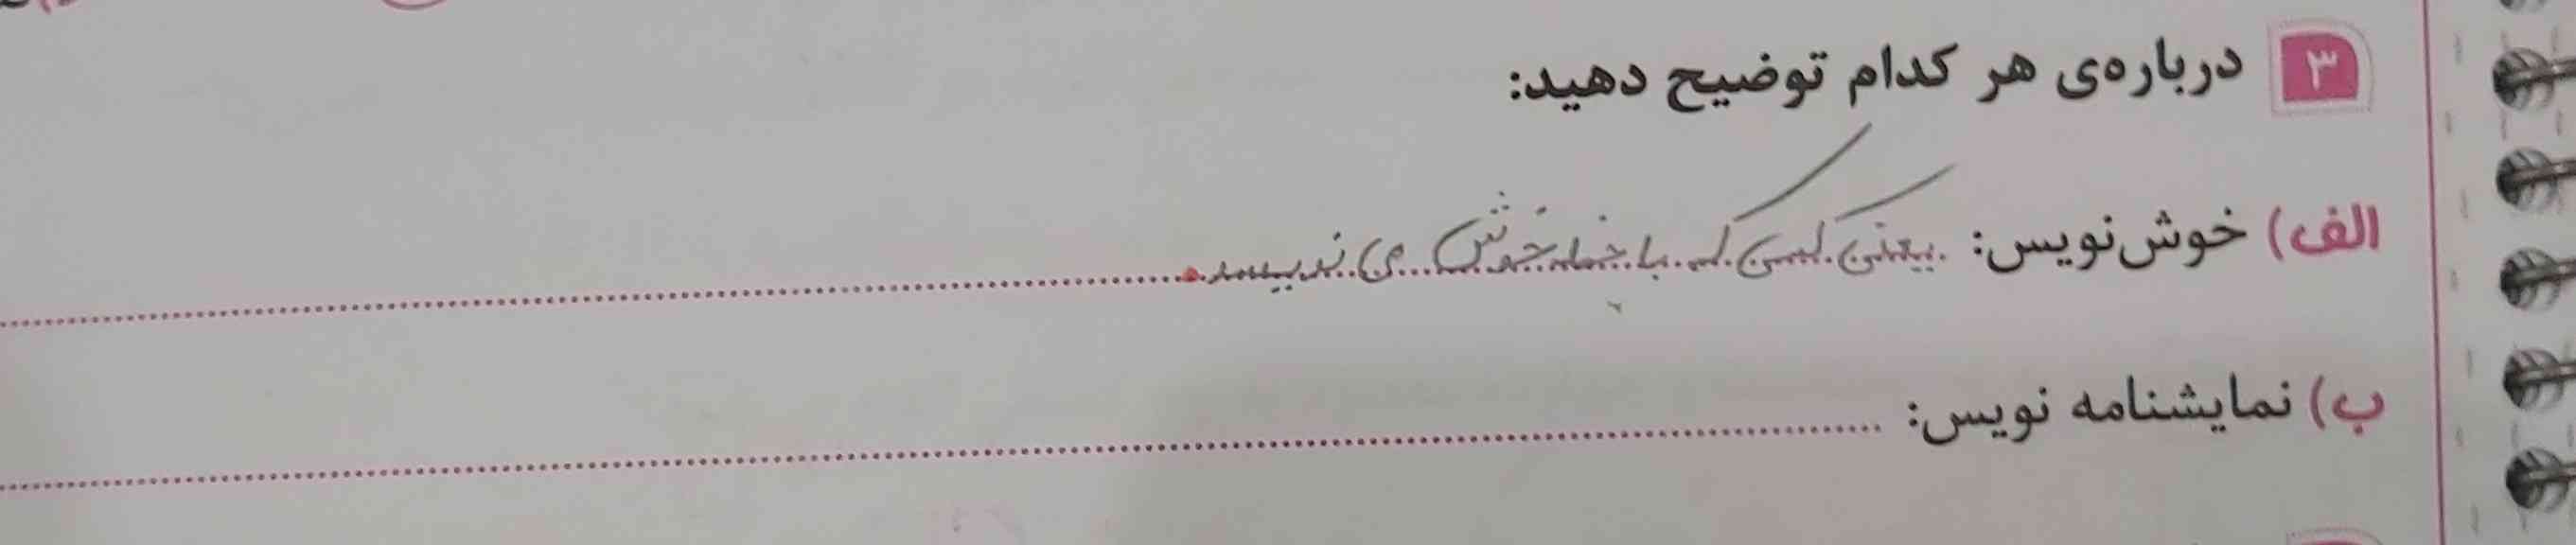 ۳ درباره‌ی هر کدام توضیح دهید:
الف) خوش‌نویس: یعنی کسی که با خط خوش می نویسد.
ب) نمایشنامه نویس: